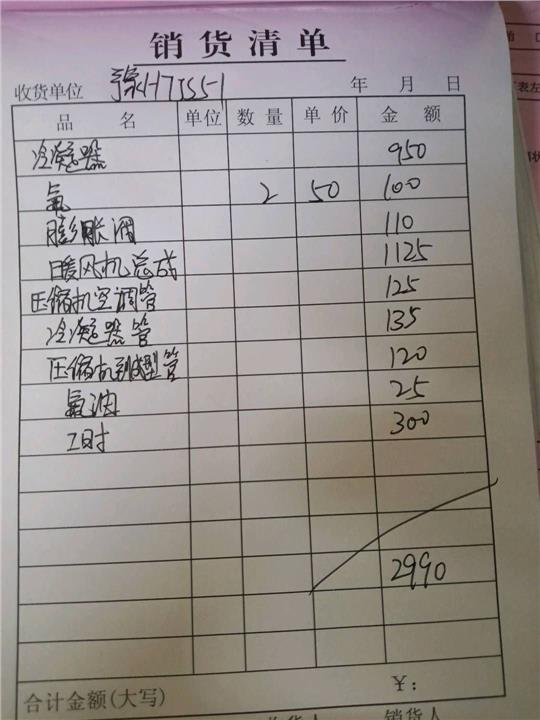 销货清单
收货单位 豫H75551 年 月 日
品 名 单位 数量 单价 金 额
冷凝器 950
氟 2 50 100
膨胀阀 110
暖风机总成 1125
压缩机空调管 125
冷凝器管 135
压缩机到 管 120
氟油 25
工时 300
2990
合计金额(大写) ¥:
销货人